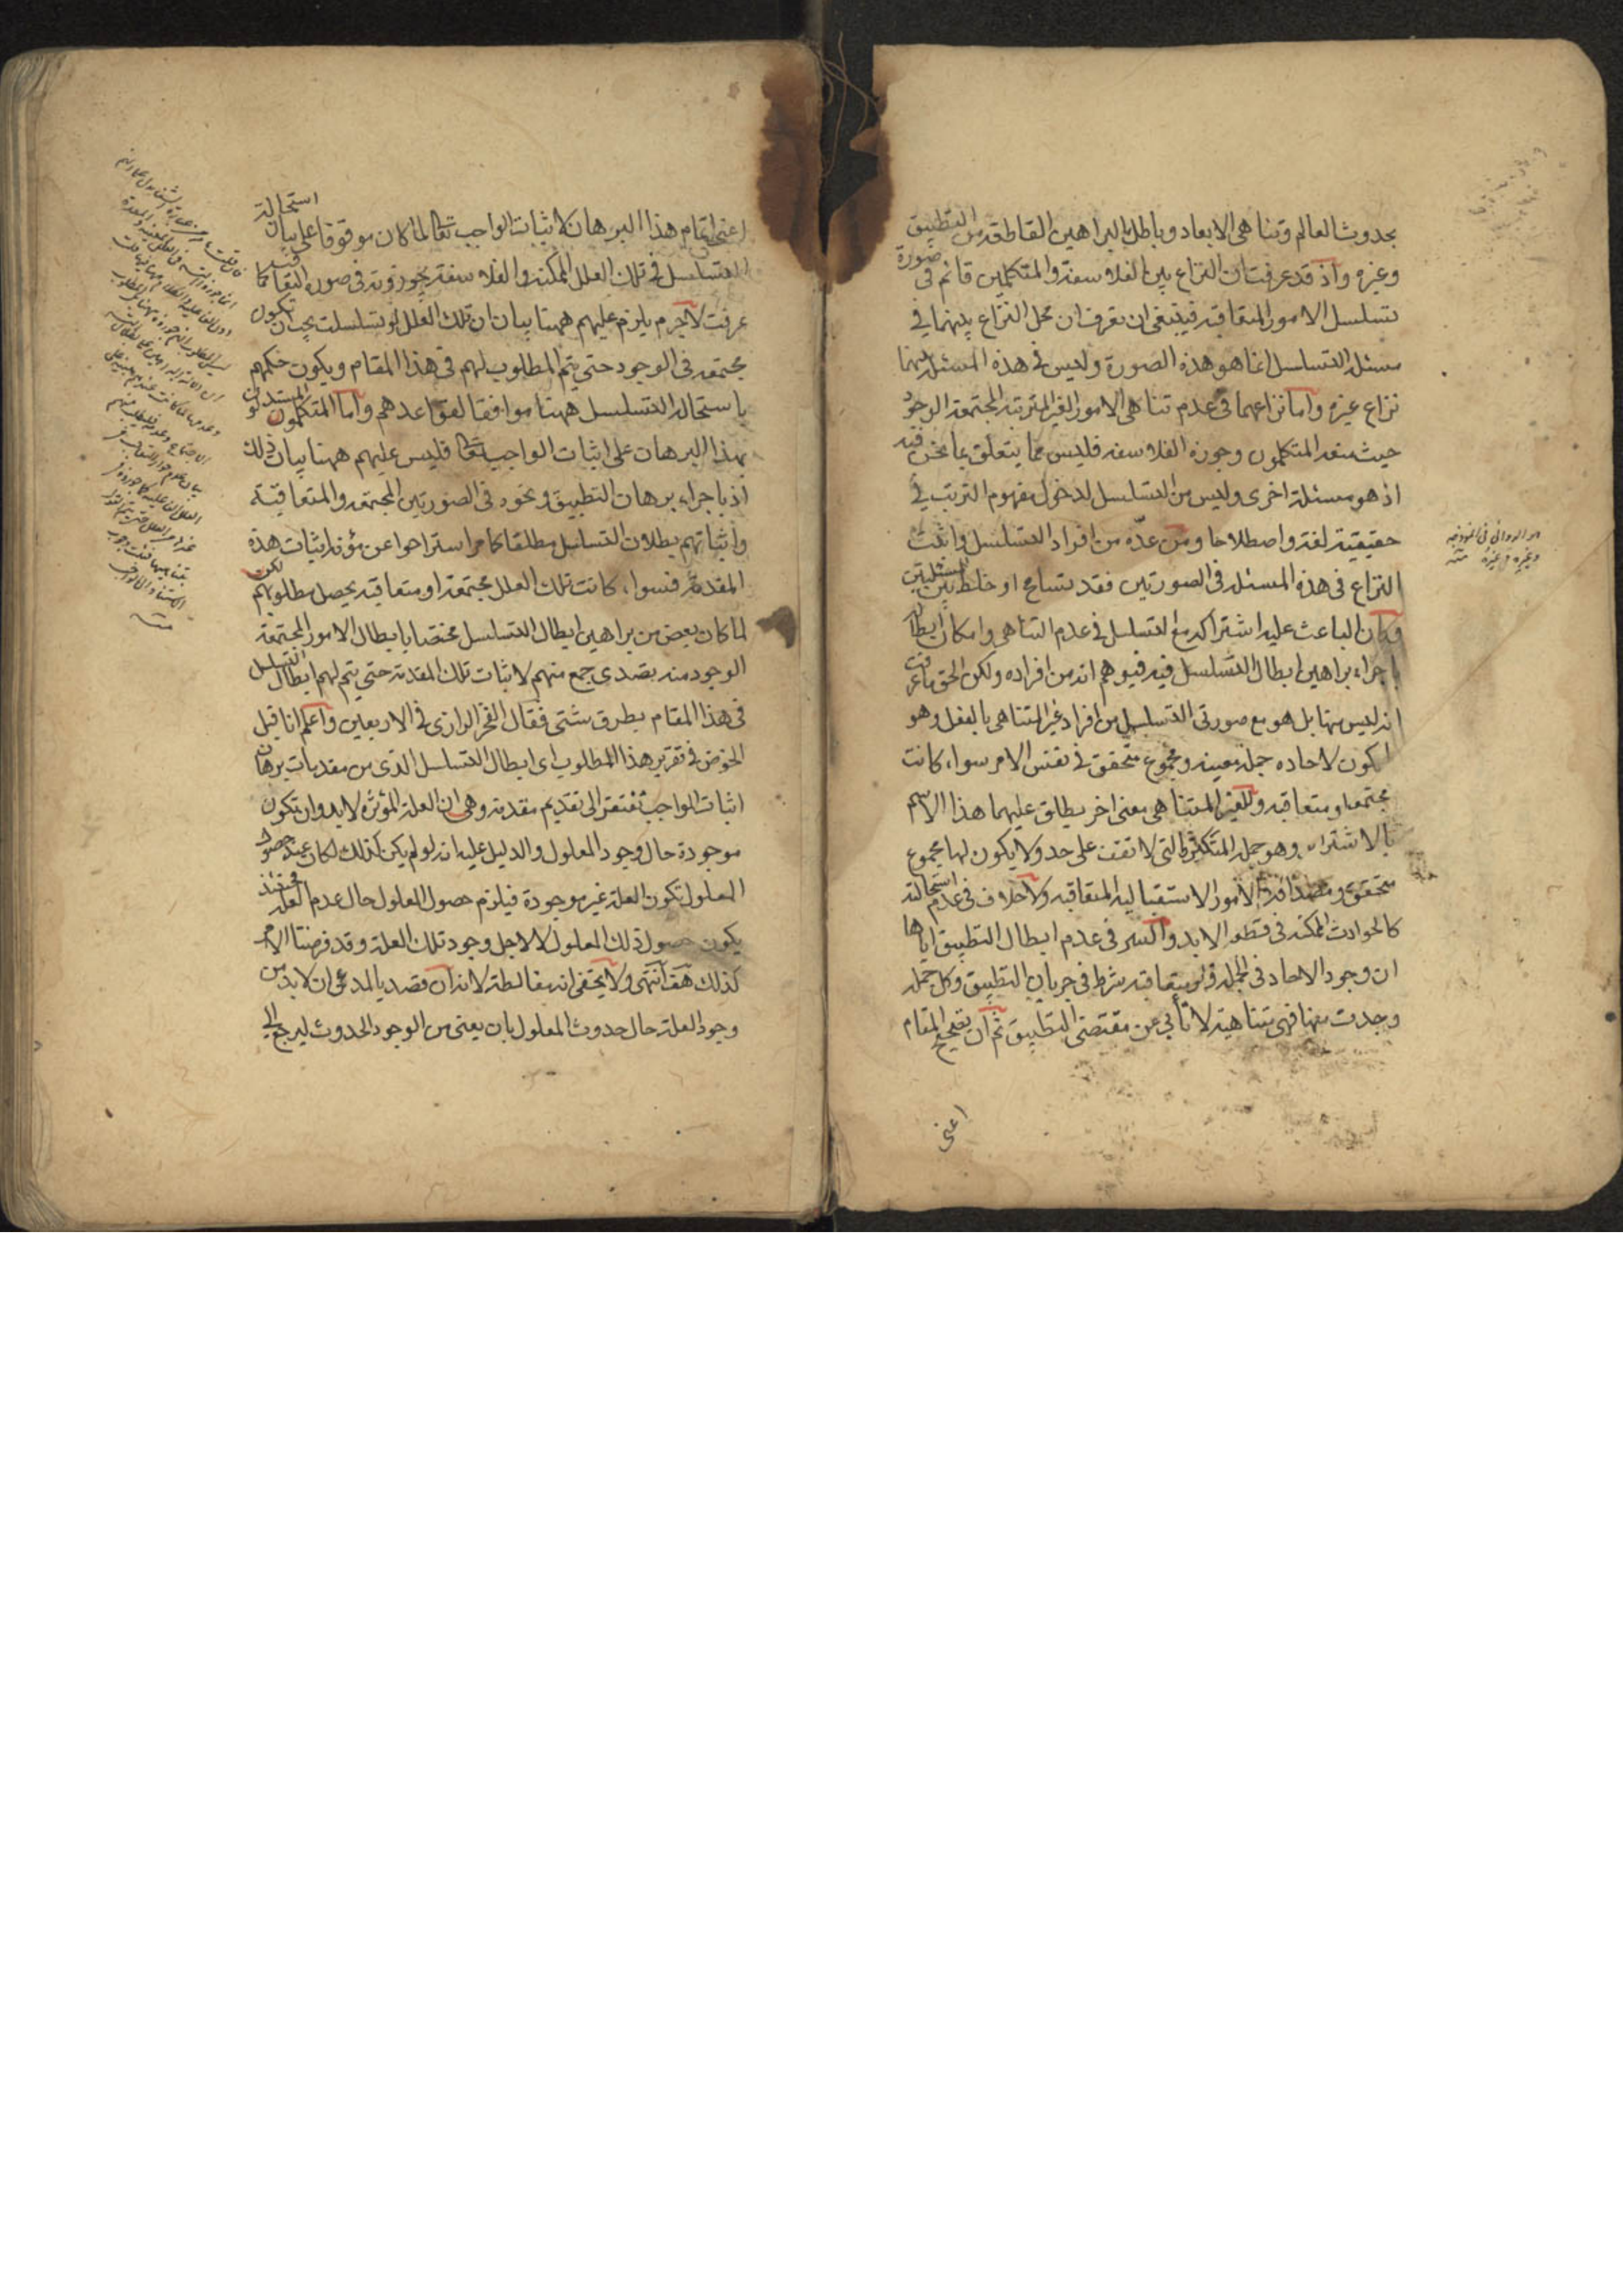 بحدوث العالم وتناهى الابعاد وباطل بالبراهين القاطعة من التطبيق
وغيره واذ قد عرفت ان النزاع بين الفلاسفة والمتكلمين قائم فى صورة
تسلسل الامور المتعاقبة فينبغى ان تعرف ان محل النزاع بينهما فى
مسئلة التسلسل انما هو هذه الصورة وليس فى هذه المسئلة بينهما
نزاع غيره واما نزاعهما فى عدم تناهى الامور الغير المترتبة المجتمعة الوجود
حيث منعه المتكلمون وجوزه الفلاسفة فليس مما يتعلق بما نحن فيه
اذ هو مسئلة اخرى وليس من التسلسل لدخول مفهوم الترتب فى
حقيقته لغة واصطلاحا ومن عده من افراد التسلسل واثبت
النزاع فى هذه المسئلة فى الصورتين فقد تسامح او خلط بين المسئلتين
وكان الباعث عليه اشتراكه مع التسلسل فى عدم التناهى وامكان ابطاله
باجراء براهين ابطال التسلسل فيه فيوهم انه من افراده ولكن الحق ما عرفت
انه ليس منها بل هو مع صورتى التسلسل من افراد غير المتناهى بالفعل وهو
لكون لاحاده جملة معينة ومجموع متحقق فى نفس الامر سواء كانت
مجتمعة او متعاقبة وللغير المتناهى معنى اخر يطلق عليهما هذا الاسم
بالاشتراك وهو جملة المتكثرة التى لا تقف على حد ولا يكون لها مجموع
متحقق ومصداقه الامور الاستقبالية المتعاقبة ولا خلاف فى عدم استحالته
كالحوادث الممكنة فى قطر الابد والسر فى عدم ابطال التطبيق اياها
ان وجود الاحاد فى الجملة ولو متعاقبة شرط فى جريان التطبيق وكل جملة
وجدت منها فهى متناهية لا تأبى عن مقتضى التطبيق ثم ان تنقيح المقام
اعنى
اعنى اتمام هذا البرهان لاثبات الواجب تعالى لما كان موقوفا على بيان استحالة
التسلسل فى تلك العلل الممكنة والفلاسفة يجوزونه فى صورة التعاقب كما
عرفت لا جرم يلزم عليهم ههنا بيان ان تلك العلل لو تسلسلت يجب ان تكون
مجتمعة فى الوجود حتى يتم المطلوب لهم فى هذا المقام ويكون حكمهم
باستحالة التسلسل ههنا موافقا لقواعدهم واما المتكلمون المستدلون
بهذا البرهان على اثبات الواجب تعالى فليس عليهم ههنا بيان ذلك
اذ باجراء برهان التطبيق ونحوه فى الصورتين المجتمعة والمتعاقبة
واثباتهم بطلان التسلسل مطلقا كما مر استراحوا عن مؤنة اثبات هذه
المقدمة فسواء كانت تلك العلل مجتمعة او متعاقبة يحصل مطلوبهم لكن
لما كان بعض من براهين ابطال التسلسل مختصا بابطال الامور المجتمعة
الوجود منه تصدى جمع منهم لاثبات تلك المقدمة حتى يتم لهم ابطال التسلسل
فى هذا المقام بطرق شتى فقال الفخر الرازى فى الاربعين واعلم انا قبل
الخوض فى تقرير هذا المطلوب اى ابطال التسلسل الذى من مقدمات برهان
اثبات الواجب نفتقر الى تقديم مقدمة وهى ان العلة المؤثرة لا بد وان تكون
موجودة حال وجود المعلول والدليل عليه انه لو لم يكن كذلك لكان عند حصول
المعلول تكون العلة غير موجودة فيلزم حصول المعلول حال عدم العلة فحينئذ
يكون حصول ذلك المعلول لا لاجل وجود تلك العلة وقد فرضنا الامر
كذلك هف انتهى ولا يخفى انه مغالطة لانه ان قصد بالمدعى ان لا بد من
وجود العلة حال حدوث المعلول بان يعنى من الوجود الحدوث ليرجع الى